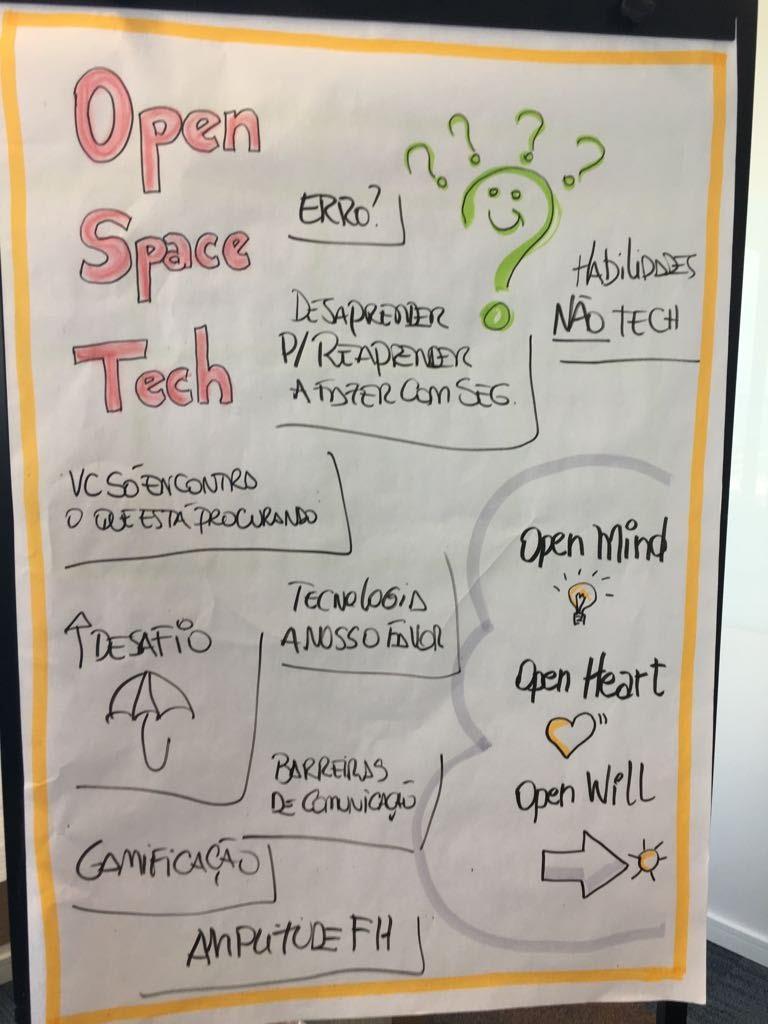 Open
Space
Tech
? ? ? ?
?
ERRO?
HABILIDADES
NÃO TECH
DESAPRENDER
P/ REAPRENDER
A FAZER COM SEG.
VC SÓ ENCONTRA
O QUE ESTÁ PROCURANDO
TECNOLOGIA
A NOSSO FAVOR
↑ DESAFIO
BARREIRAS
DE COMUNICAÇÃO
GAMIFICAÇÃO
AMPLITUDE FH
Open Mind
Open Heart
Open Will